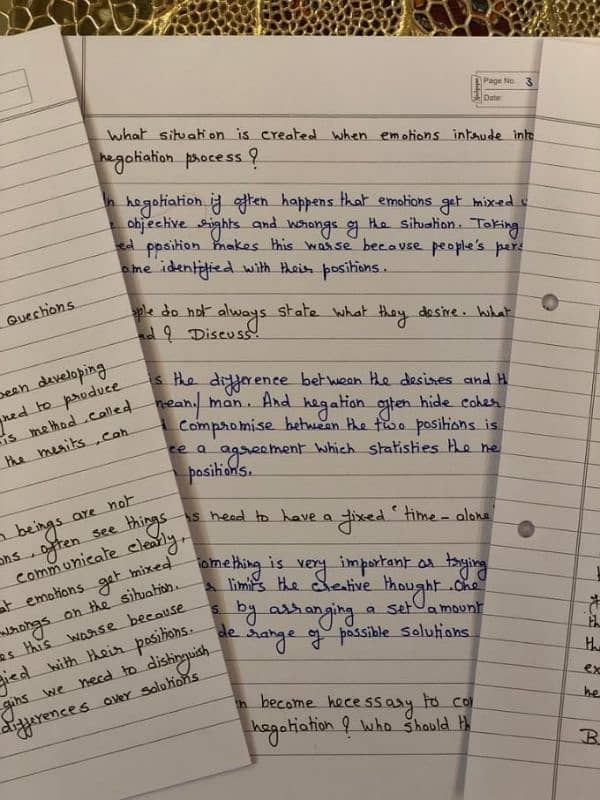 Page No. 3
Date:
What situation is created when emotions intrude into
negotiation process ?
In negotiation if often happens that emotions get mixed
objective rights and wrongs of the situation. Taking
ppsition makes this worse because people's
identified with their positions.
do not always state what they desire. What
? Discuss.
is the difference between the desires and
mean/ man. And negation often hide
Compromise between the two positions is
a agreement which statisties the
positions.
need to have a fixed "time - alone
something is very important as trying
limits the creative thought. One
by arranging a set amount
range of possible solutions
become necessary to
negotiation ? Who should
Questions
been developing
to produce
is method called
the merits, can
beings are not
often see things
communicate clearly,
emotions get mixed
wrongs on the situation.
this worse because
with their positions.
we need to distinguish
differences over solutions
ex
he
B